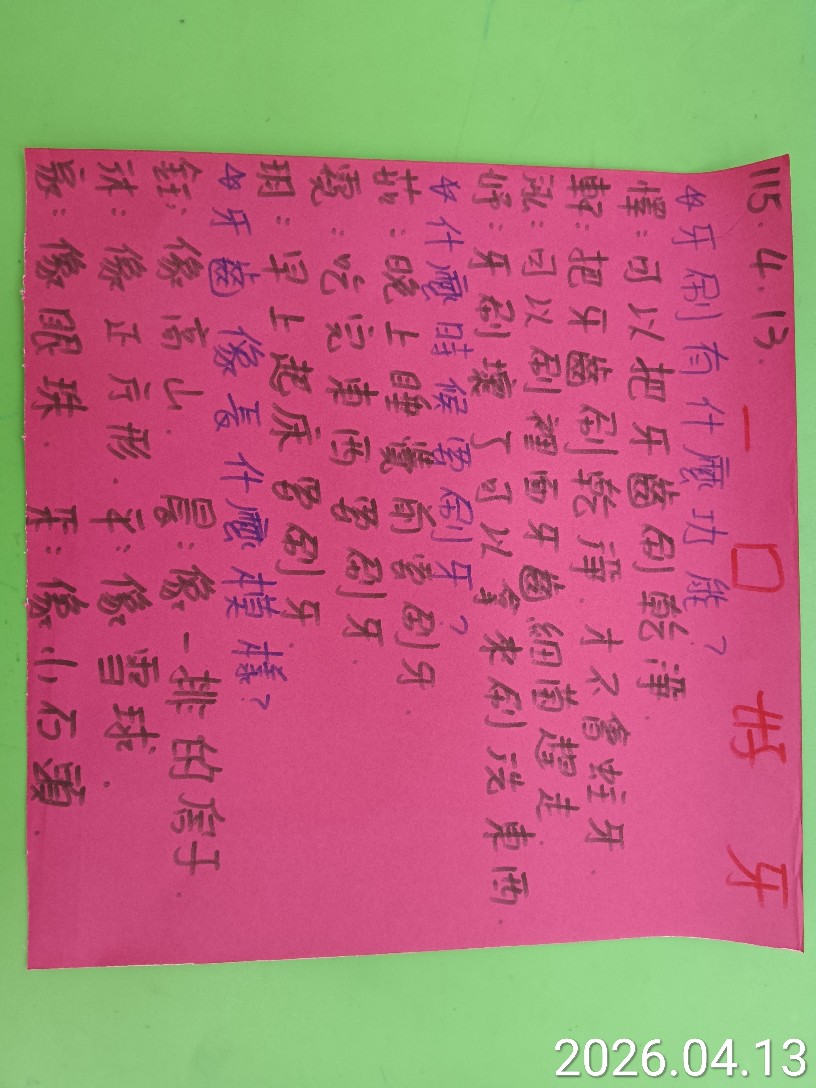 115.4.13.
一口好牙
☆牙刷有什麼功能？
惲：可以把牙齒刷乾淨.
軒：把牙齒刷乾淨.才不會蛀牙.
泓：可以刷裡面牙齒細菌趕走
妤：牙刷壞了可以拿來刷洗東西.
☆什麼時候要刷牙？
茹：晚上睡覺前要刷牙
霓：吃完東西要刷牙.
玥：早上起床要刷牙
☆牙齒像長什麼模樣？
鈺：像高山. 晨：像一排的房子.
沐：像正方形. 平：像雪球.
宸：像眼珠. 采：像小石頭.
2026.04.13